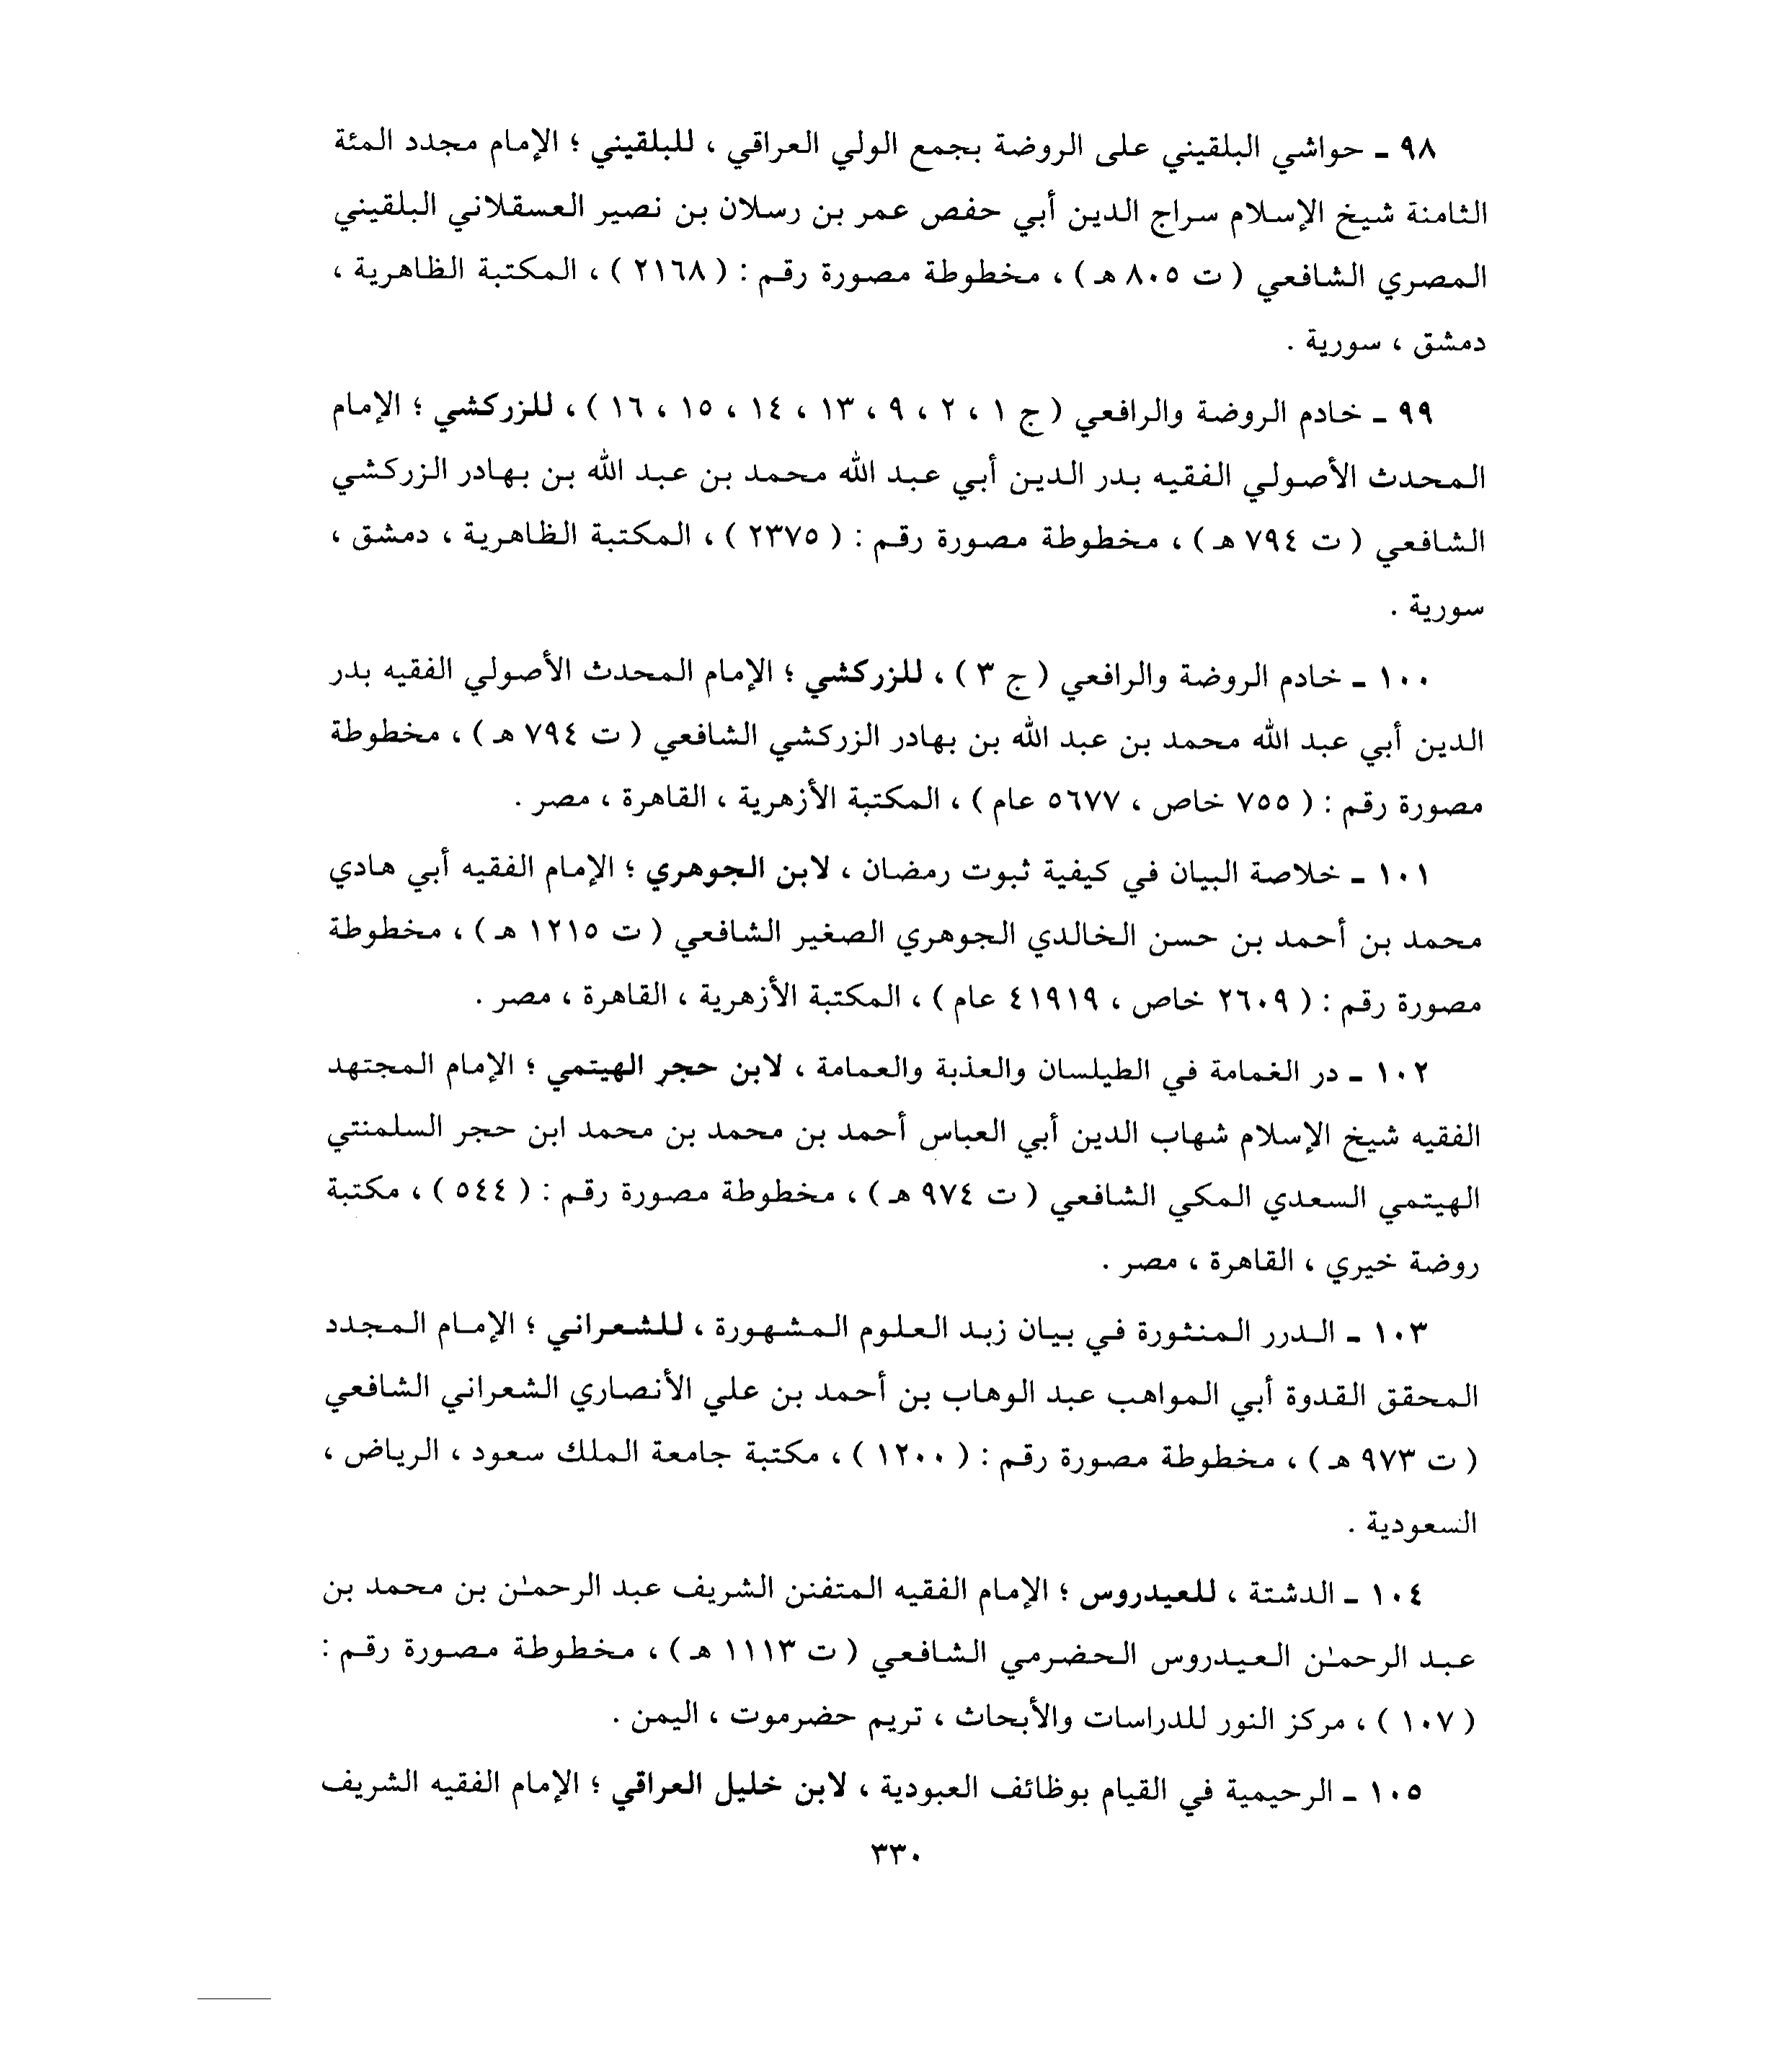 ٩٨ ـ حواشي البلقيني على الروضة بجمع الولي العراقي ، للبلقيني ؛ الإمام مجدد المئة
الثامنة شيخ الإسلام سراج الدين أبي حفص عمر بن رسلان بن نصير العسقلاني البلقيني
المصري الشافعي ( ت ٨٠٥ هـ ) ، مخطوطة مصورة رقم : ( ٢١٦٨ ) ، المكتبة الظاهرية ،
دمشق ، سورية .
٩٩ ـ خادم الروضة والرافعي ( ج ١ ، ٢ ، ٩ ، ١٣ ، ١٤ ، ١٥ ، ١٦ ) ، للزركشي ؛ الإمام
المحدث الأصولي الفقيه بدر الدين أبي عبد الله محمد بن عبد الله بن بهادر الزركشي
الشافعي ( ت ٧٩٤ هـ ) ، مخطوطة مصورة رقم : ( ٢٣٧٥ ) ، المكتبة الظاهرية ، دمشق ،
سورية .
١٠٠ ـ خادم الروضة والرافعي ( ج ٣ ) ، للزركشي ؛ الإمام المحدث الأصولي الفقيه بدر
الدين أبي عبد الله محمد بن عبد الله بن بهادر الزركشي الشافعي ( ت ٧٩٤ هـ ) ، مخطوطة
مصورة رقم : ( ٧٥٥ خاص ، ٥٦٧٧ عام ) ، المكتبة الأزهرية ، القاهرة ، مصر .
١٠١ ـ خلاصة البيان في كيفية ثبوت رمضان ، لابن الجوهري ؛ الإمام الفقيه أبي هادي
محمد بن أحمد بن حسن الخالدي الجوهري الصغير الشافعي ( ت ١٢١٥ هـ ) ، مخطوطة
مصورة رقم : ( ٢٦٠٩ خاص ، ٤١٩١٩ عام ) ، المكتبة الأزهرية ، القاهرة ، مصر .
١٠٢ ـ در الغمامة في الطيلسان والعذبة والعمامة ، لابن حجر الهيتمي ؛ الإمام المجتهد
الفقيه شيخ الإسلام شهاب الدين أبي العباس أحمد بن محمد بن محمد ابن حجر السلمنتي
الهيتمي السعدي المكي الشافعي ( ت ٩٧٤ هـ ) ، مخطوطة مصورة رقم : ( ٥٤٤ ) ، مكتبة
روضة خيري ، القاهرة ، مصر .
١٠٣ ـ الدرر المنثورة في بيان زبد العلوم المشهورة ، للشعراني ؛ الإمام المجدد
المحقق القدوة أبي المواهب عبد الوهاب بن أحمد بن علي الأنصاري الشعراني الشافعي
( ت ٩٧٣ هـ ) ، مخطوطة مصورة رقم : ( ١٢٠٠ ) ، مكتبة جامعة الملك سعود ، الرياض ،
السعودية .
١٠٤ ـ الدشتة ، للعيدروس ؛ الإمام الفقيه المتفنن الشريف عبد الرحمٰن بن محمد بن
عبد الرحمٰن العيدروس الحضرمي الشافعي ( ت ١١١٣ هـ ) ، مخطوطة مصورة رقم :
( ١٠٧ ) ، مركز النور للدراسات والأبحاث ، تريم حضرموت ، اليمن .
١٠٥ ـ الرحيمية في القيام بوظائف العبودية ، لابن خليل العراقي ؛ الإمام الفقيه الشريف
٣٣٠